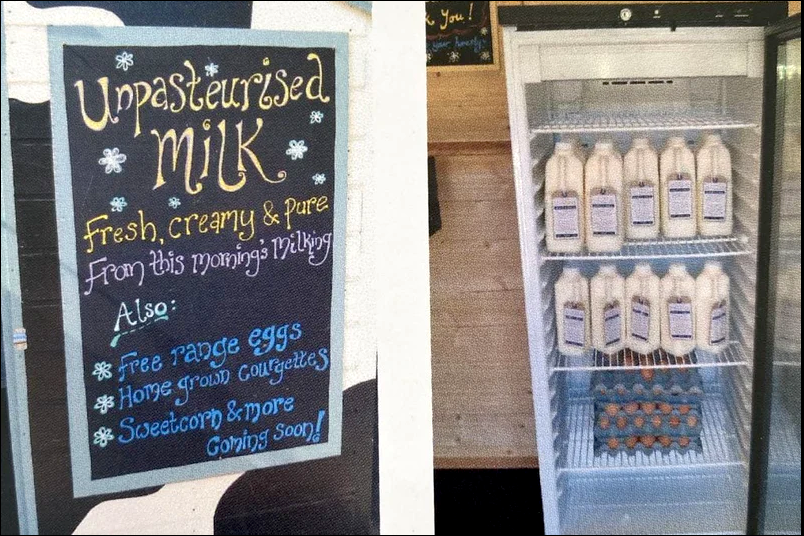 Unpasteurised
Milk
Fresh, creamy & Pure
From this morning's Milking
Also:
Free range eggs
Home grown Courgettes
Sweetcorn & more
Coming soon!
k You!
your honesty.